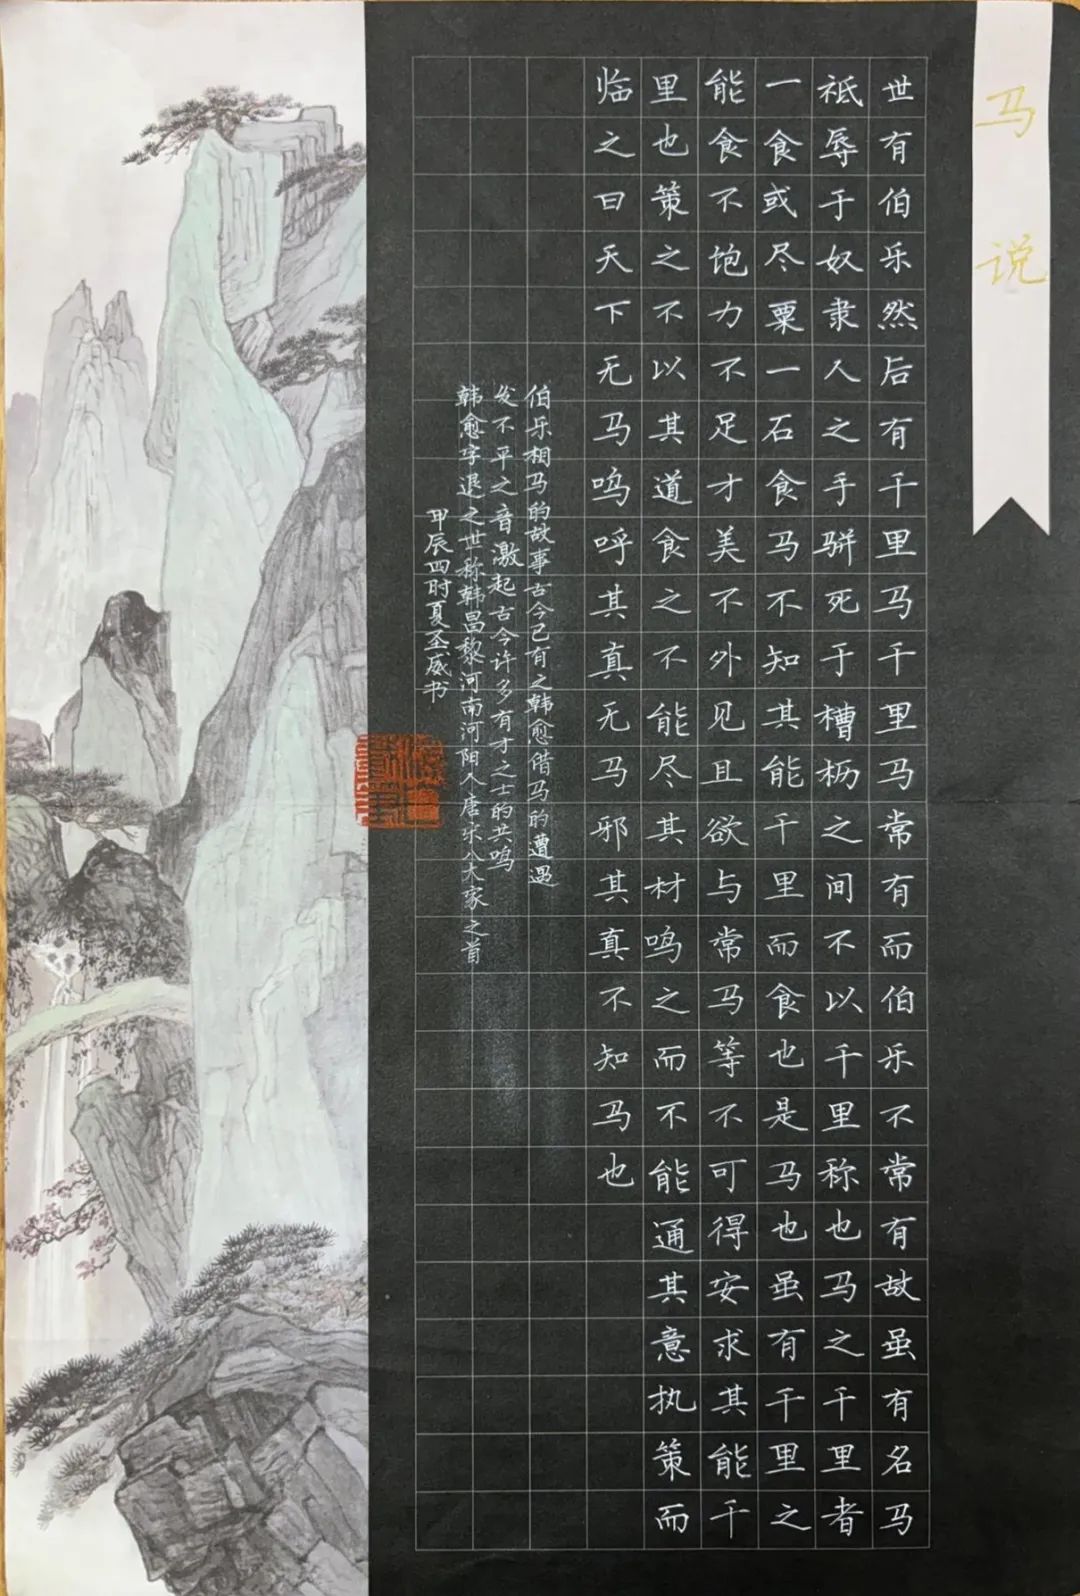 马说
世有伯乐然后有千里马千里马常有而伯乐不常有故虽有名马
祗辱于奴隶人之手骈死于槽枥之间不以千里称也马之千里者
一食或尽粟一石食马不知其能千里而食也是马也虽有千里之
能食不饱力不足才美不外见且欲与常马等不可得安求其能千
里也策之不以其道食之不能尽其材鸣之而不能通其意执策而
临之曰天下无马呜呼其真无马邪其真不知马也
伯乐相马的故事古今已有之韩愈借马的遭遇
发不平之音激起古今许多有才之士的共鸣
韩愈字退之世称韩昌黎河南河阳人唐宋八大家之首
甲辰四时夏圣威书